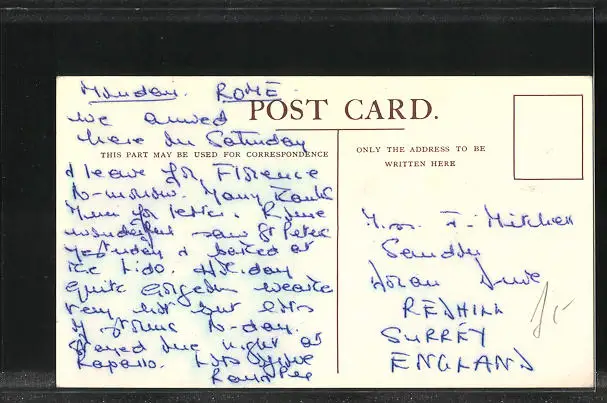 Monday. ROME
We arrived
here on Saturday
& leave for Florence
to-morrow. Many Thanks
Mum for letter. Rome
wonderful saw St Peters
yesterday & bathed at
the Lido. day
quite gorgeous weather
very hot but lots
of to-day.
Stayed one night at
Rapallo. Lots love
POST CARD.
THIS PART MAY BE USED FOR CORRESPONDENCE
ONLY THE ADDRESS TO BE
WRITTEN HERE
Mrs. F. Mitchell
Drive
REDHILL
SURREY
ENGLAND